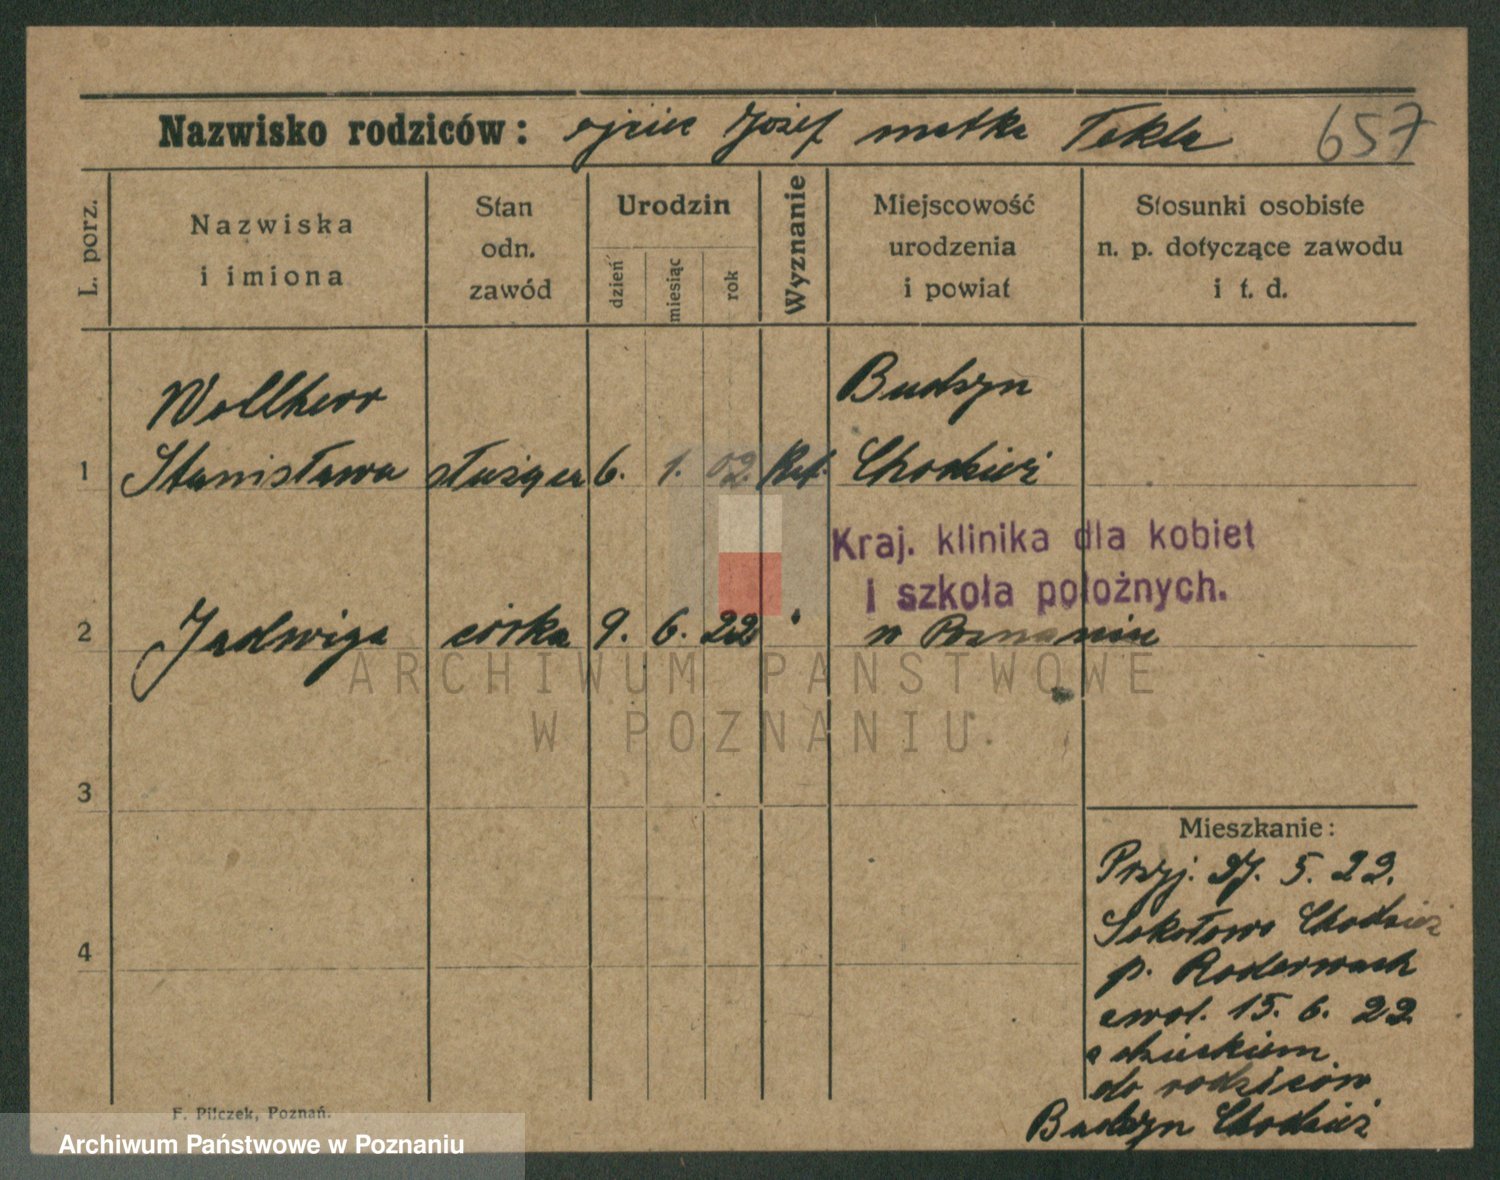 Nazwisko rodziców: ojciec Józef matka Tekla 657
L. porz.
Nazwiska
i imiona
Stan
odn.
zawód
Urodzin
dzień
miesiąc
rok
Wyznanie
Miejscowość
urodzenia
i powiat
Stosunki osobiste
n. p. dotyczące zawodu
i t. d.
Wollherr
Budzyn
1 Stanisława służąca 6. 1. 02. Kat. Chodzież
Kraj. klinika dla kobiet
i szkoła położnych.
2 Jadwiga córka 9. 6. 22 " w Poznaniu
3
4
Mieszkanie:
Przyj. 27. 5. 22.
Sokołowo Chodzież
p.
zwol. 15. 6. 22
z dzieckiem
do rodziców
Budzyn Chodzież
F. Pilczek, Poznań.
ARCHIWUM PAŃSTWOWE
W POZNANIU
Archiwum Państwowe w Poznaniu